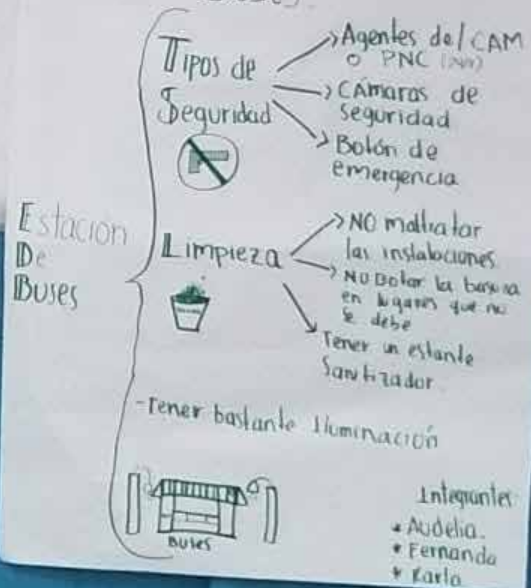 Tipos de
Seguridad
Agentes del CAM
o PNC
Cámaras de
seguridad
Botón de
emergencia
Estación
De
Buses
Limpieza
NO maltratar
las instalaciones
NO Botar la basura
en lugares que no
se debe
Tener un estante
Sanitizador
-Tener bastante iluminación
BUSES
Integrantes
* Audelia.
* Fernanda
* Karla